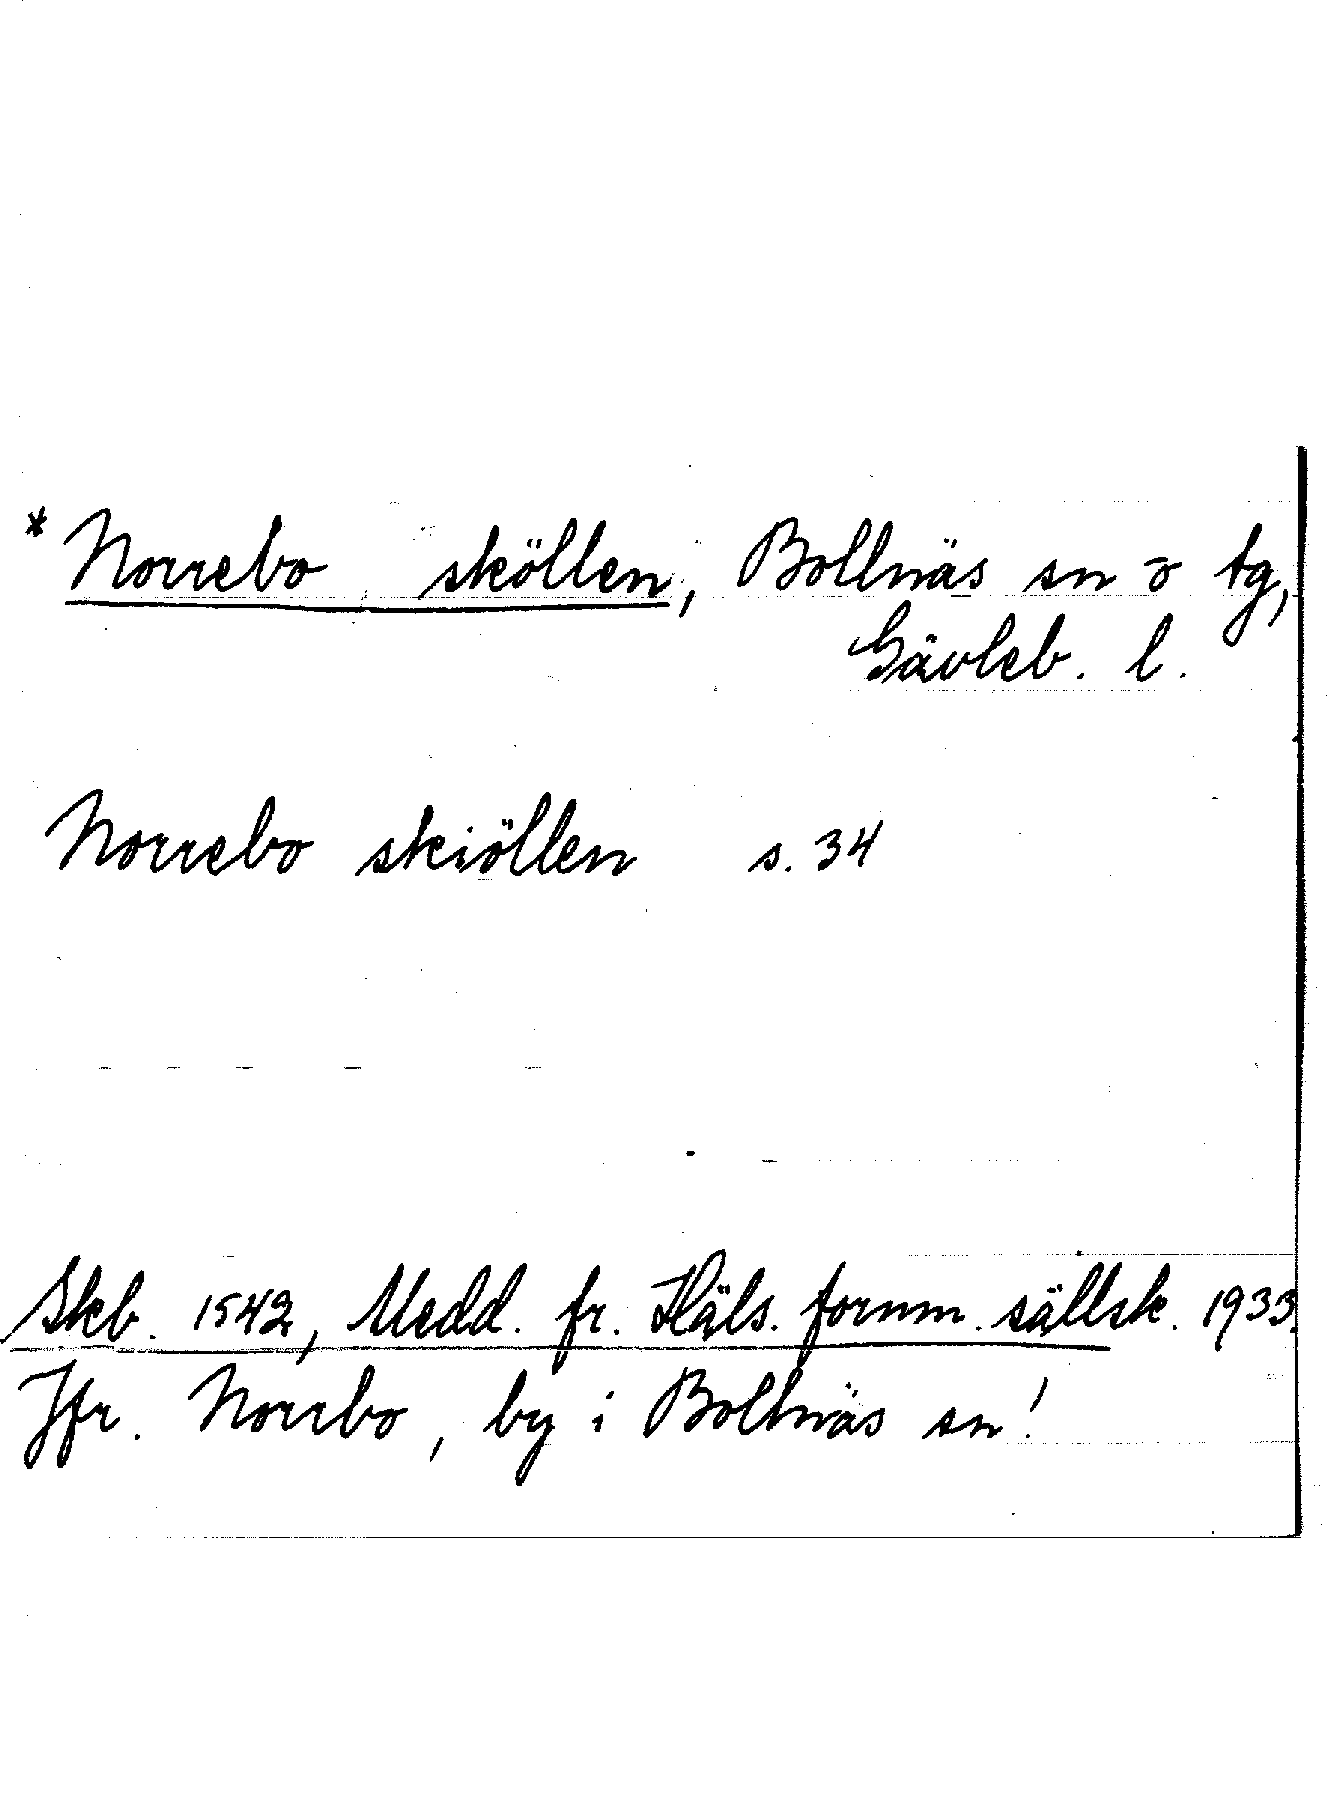 * Norrebo sköllen, Bollnäs sn o tg,
Gävleb. l.
Norrebo skiöllen s. 34
Skb. 1542, Medd. fr. Häls. fornm. sällsk. 1933.
Jfr. Norrbo, by i Bollnäs sn!